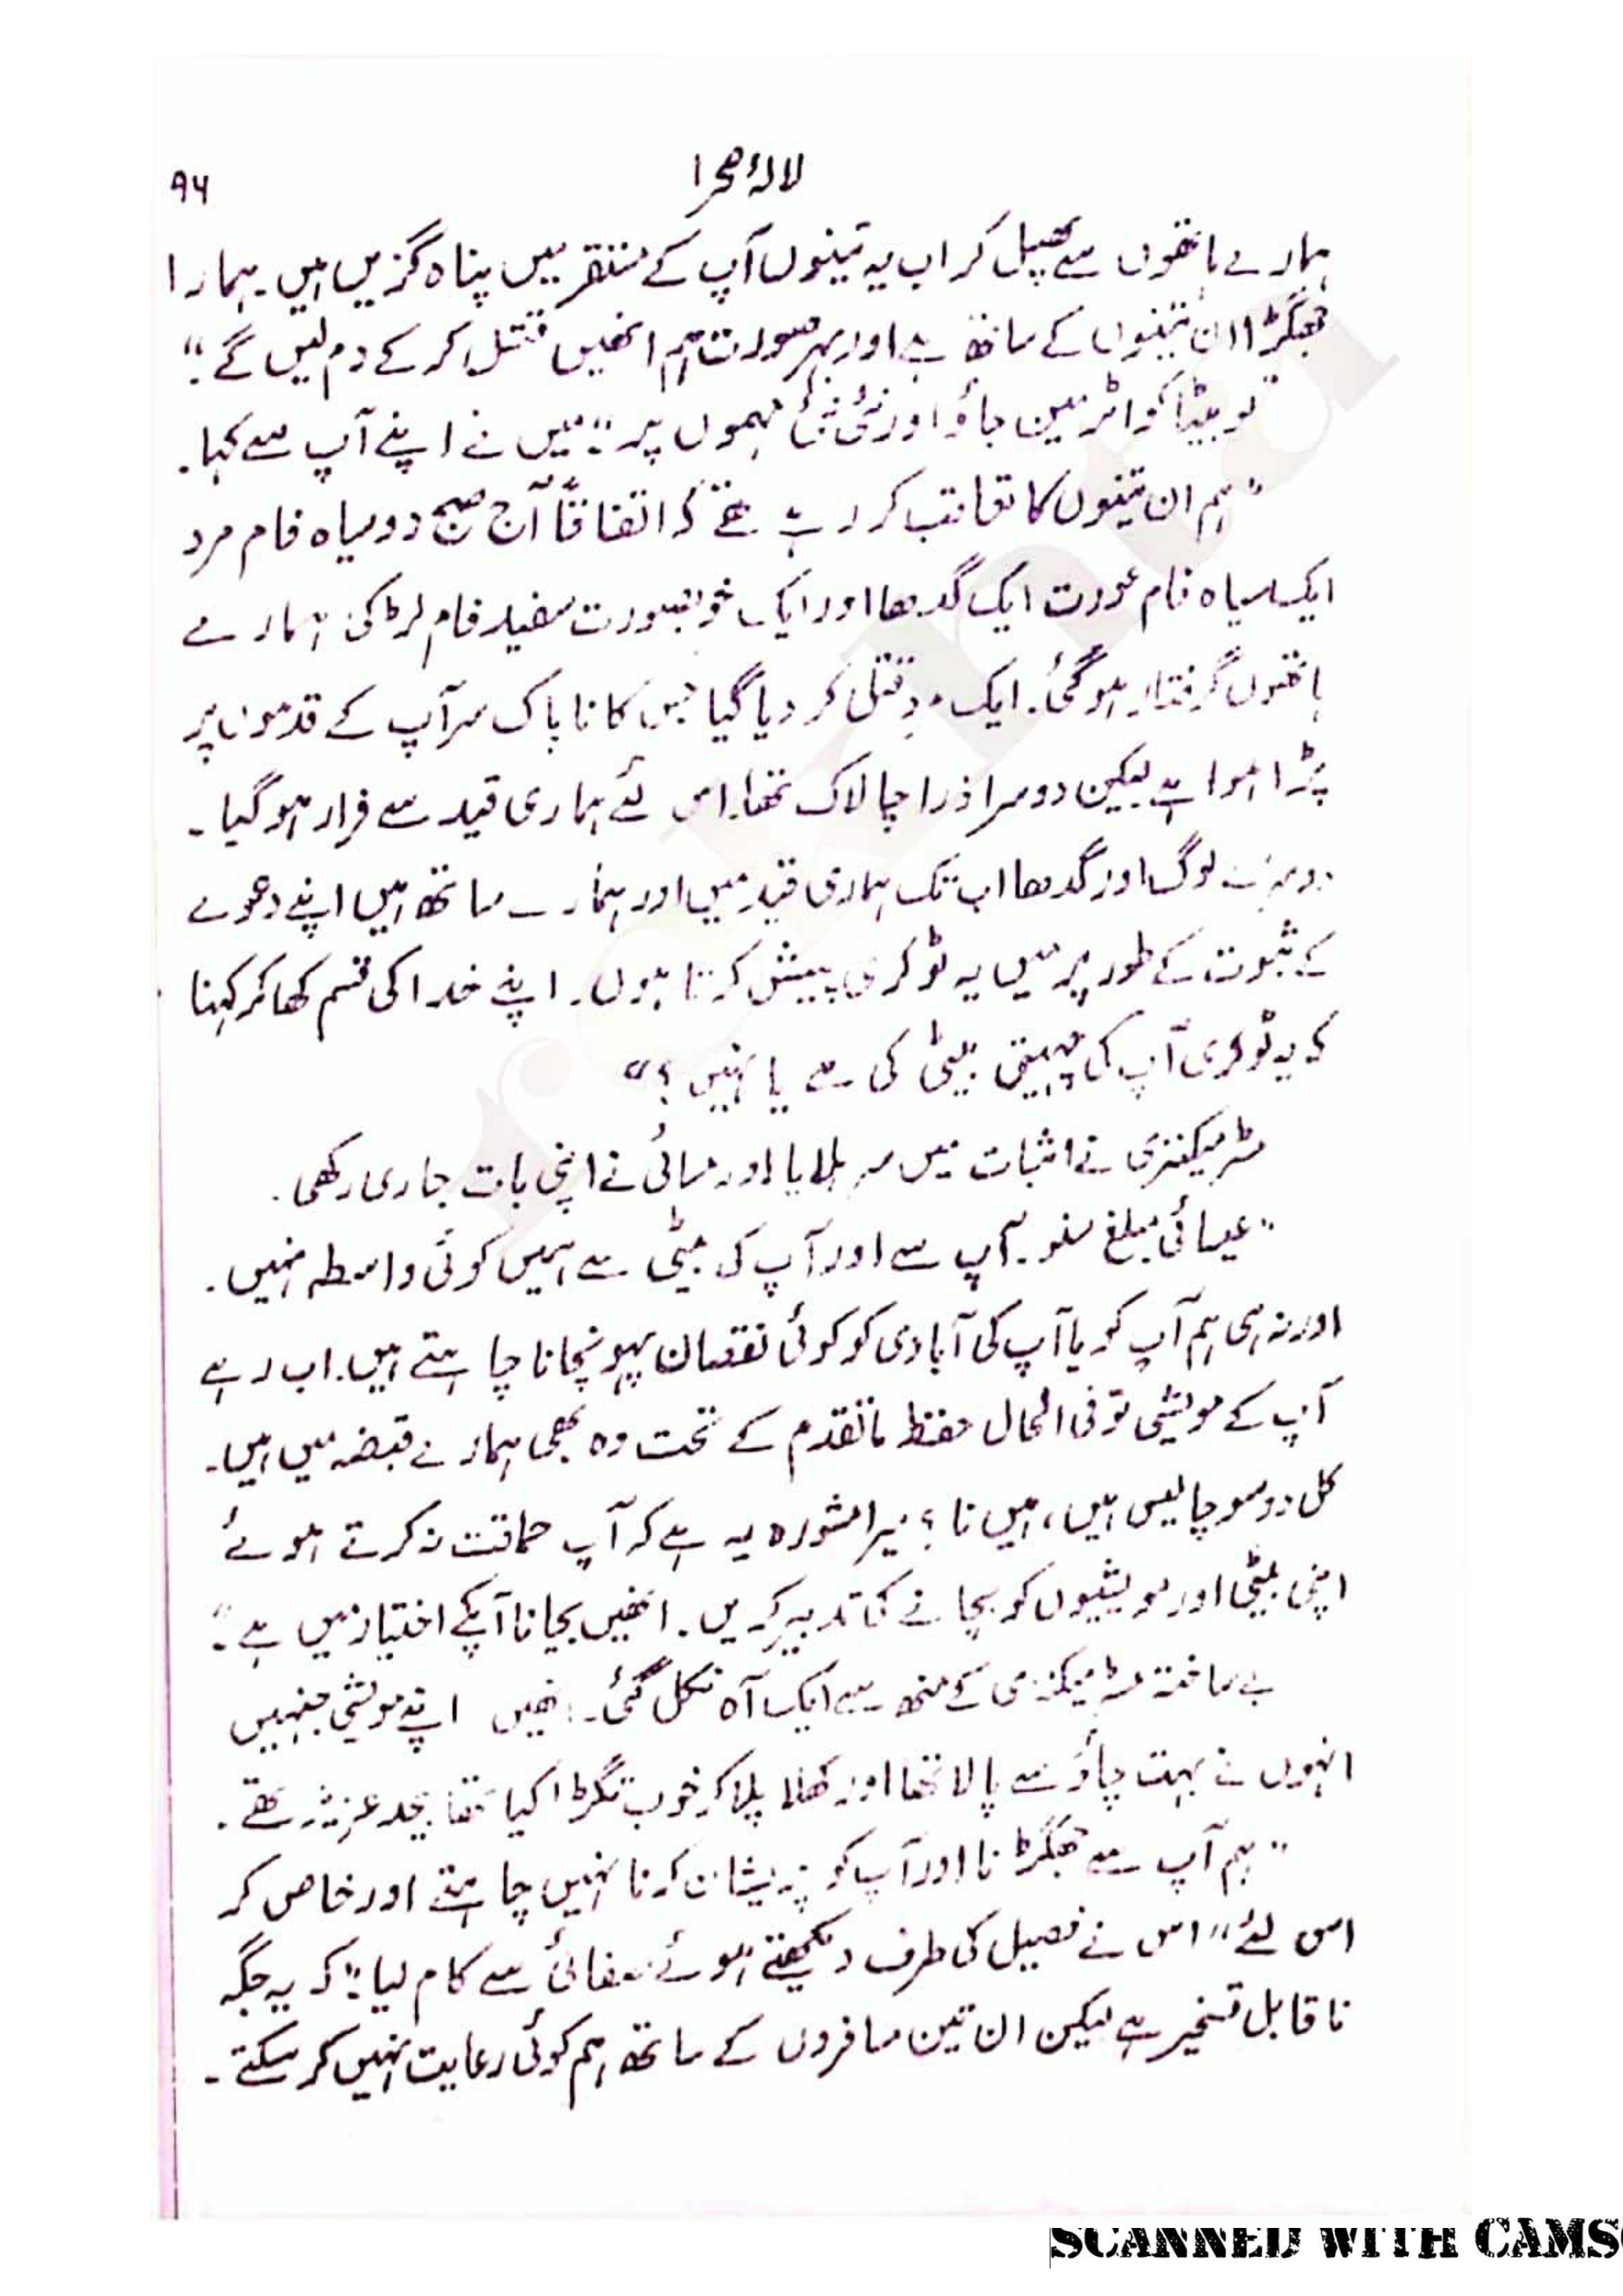 لالۂ صحرا
۹۶
ہمارے ہاتھوں سے پھسل کر اب یہ تینوں آپ کے مستقر میں پناہ گزیں ہیں۔ ہمارا
جھگڑا ان تینوں کے ساتھ ہے اور بہر صورت ہم انھیں قتل کر کے دم لیں گے۔"
تو بیٹا کواٹر مین جاؤ اور نئی نئی مہموں پر۔" میں نے اپنے آپ سے کہا۔
"ہم ان تینوں کا تعاقب کر رہے تھے کہ اتفاقاً آج صبح دو سیاہ فام مرد
ایک سیاہ فام عورت ایک گدھا اور ایک خوبصورت سفید فام لڑکی ہمارے
ہاتھوں گرفتار ہو گئی۔ ایک مرد قتل کر دیا گیا جس کا ناپاک سر آپ کے قدموں پر
پڑا ہوا ہے لیکن دوسرا ذرا چالاک تھا۔ اس لئے ہماری قید سے فرار ہو گیا۔
دوسرے لوگ اور گدھا اب تک ہماری قید میں اور ہمارے ساتھ ہیں اپنے دعوے
کے ثبوت کے طور پر میں یہ ٹوکری پیش کرتا ہوں۔ اپنے خدا کی قسم کھا کر کہنا
کہ یہ ٹوکری آپ کی چہیتی بیٹی کی ہے یا نہیں؟"
مسٹر میکنزی نے اثبات میں سر ہلایا اور مسائی نے اپنی بات جاری رکھی۔
"عیسائی مبلغ سنو۔ آپ سے اور آپ کی بیٹی سے ہمیں کوئی واسطہ نہیں۔
اور نہ ہی ہم آپ کو یا آپ کی آبادی کو کوئی نقصان پہونچانا چاہتے ہیں۔ اب رہے
آپ کے مویشی تو فی الحال حفظ ماتقدم کے تحت وہ بھی ہمارے قبضہ میں ہیں۔
کل دو سو چالیس ہیں، ہیں نا؟ میرا مشورہ یہ ہے کہ آپ حماقت نہ کرتے ہوئے
اپنی بیٹی اور مویشیوں کو بچانے کی تدبیر کریں۔ انھیں بچانا آپکے اختیار میں ہے۔"
بے ساختہ مسٹر میکنزی کے منھ سے ایک آہ نکل گئی۔ انھیں اپنے مویشی جنہیں
انہوں نے بہت چاؤ سے پالا تھا اور کھلا پلا کر خوب تگڑا کیا تھا بیحد عزیز تھے۔
"ہم آپ سے جھگڑنا اور آپ کو پریشان کرنا نہیں چاہتے اور خاص کر
اس لئے" اس نے فصیل کی طرف دیکھتے ہوئے صفائی سے کام لیا۔" کہ یہ جگہ
ناقابل تسخیر ہے لیکن ان تین مسافروں کے ساتھ ہم کوئی رعایت نہیں کر سکتے۔
SCANNED WITH CAMS